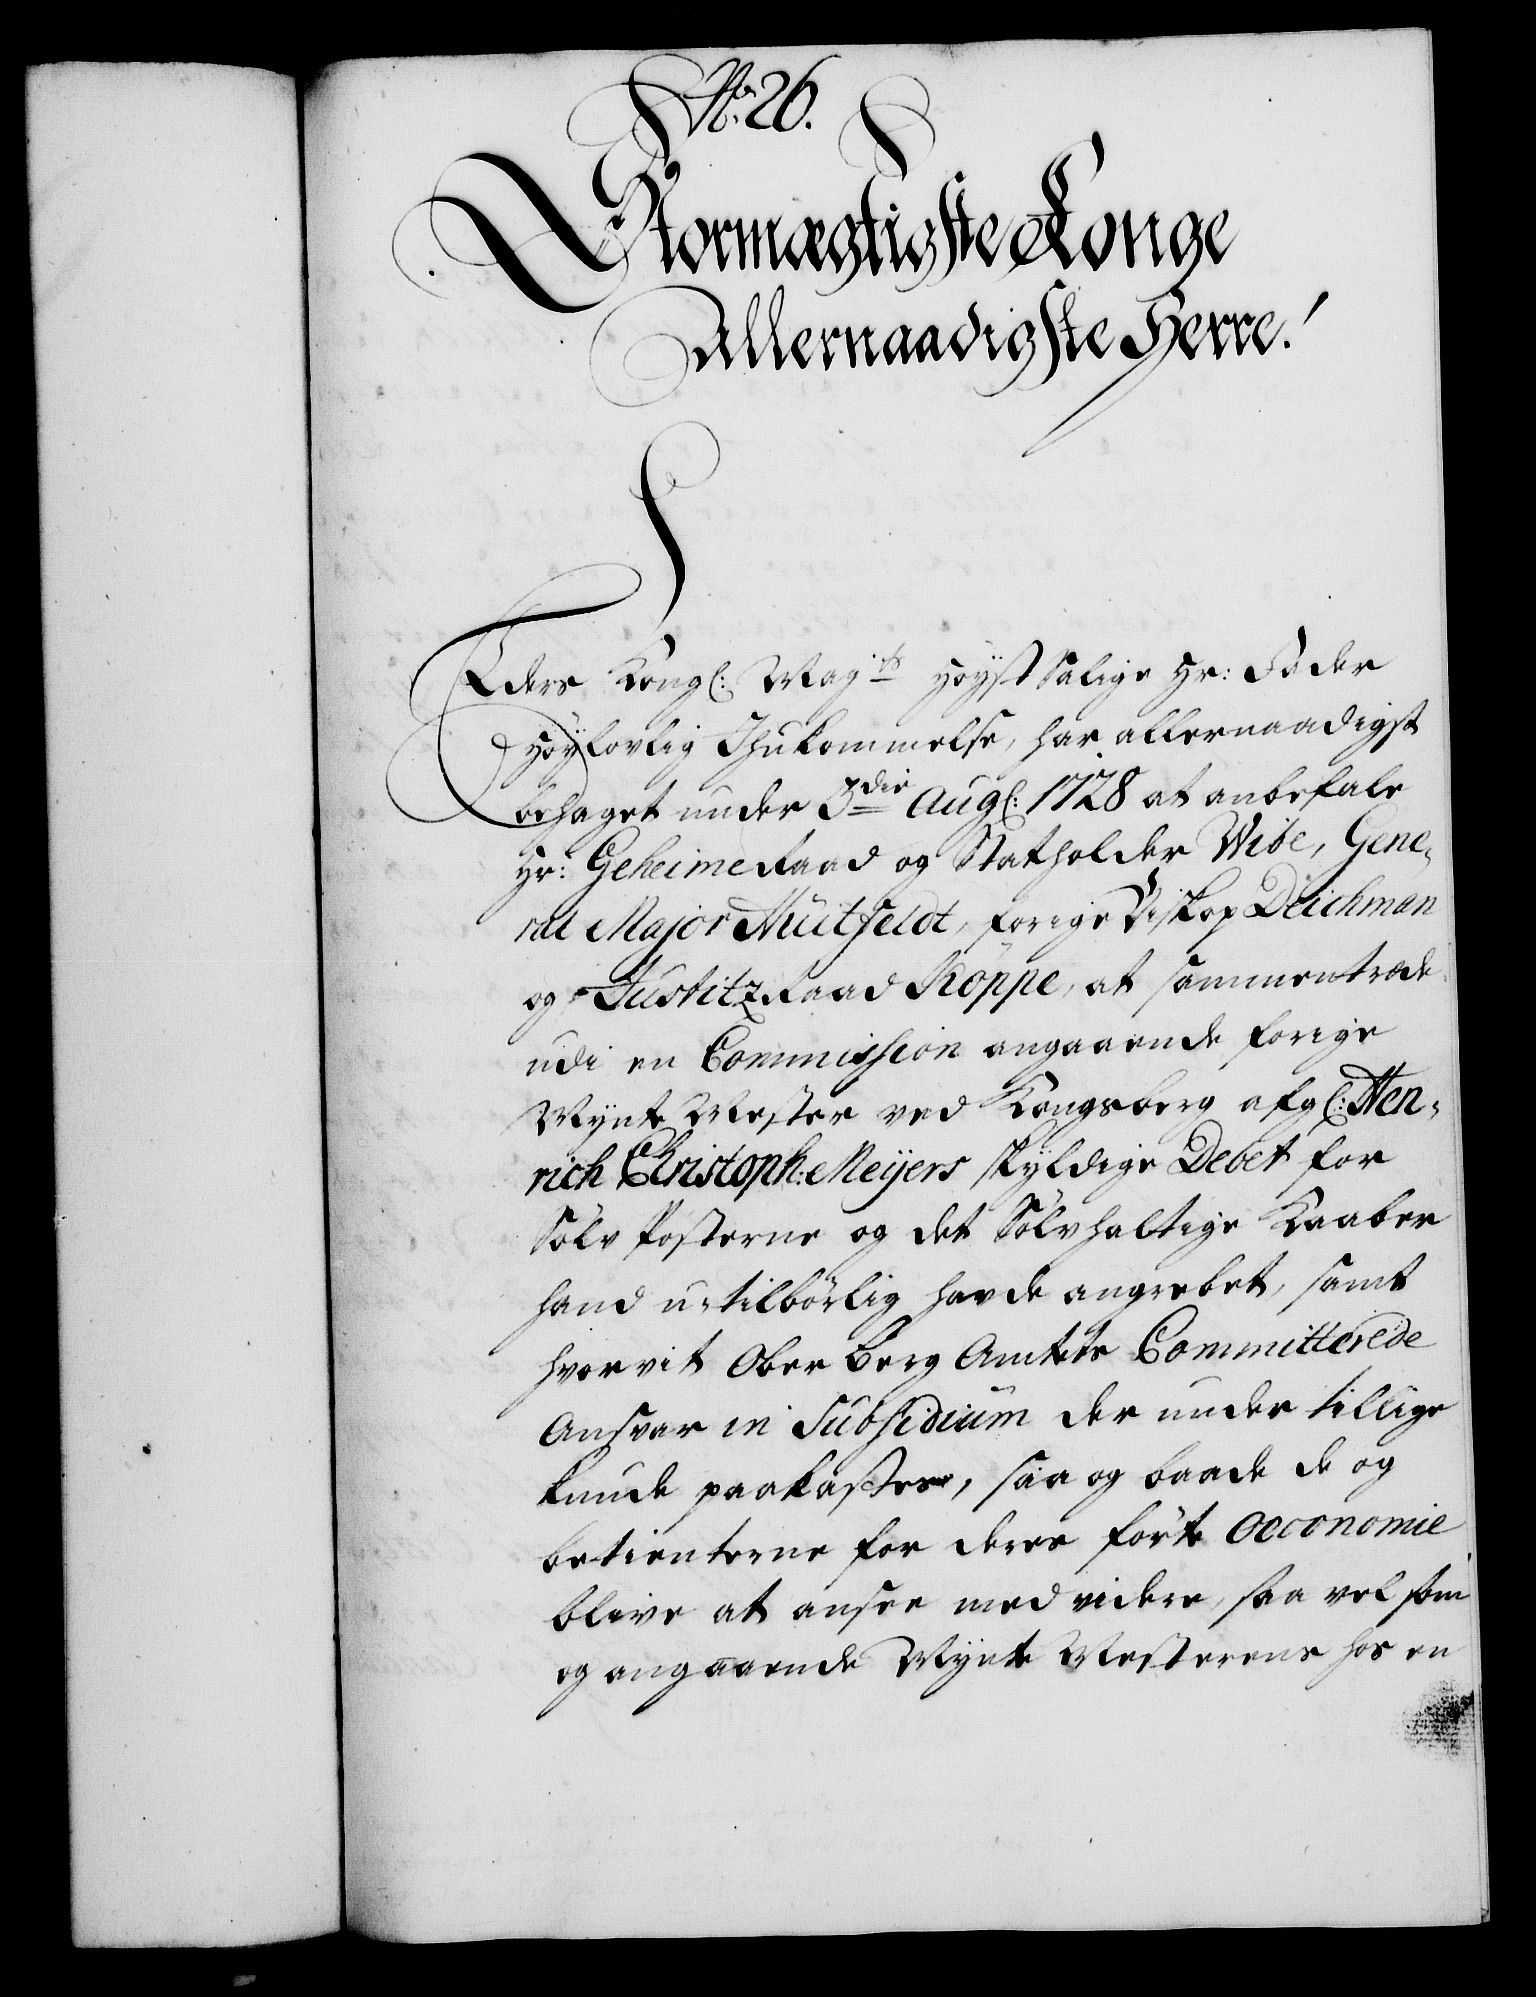 No: 26.
Stormægtigste Konge
Allernaadigste Herre!
Eders Kongl: Maj:ts Høyst Salige Hr: Fader
Høylovlig Ihukommelse, har allernaadigst
behaget under 3die Augl: 1728 at anbefale
Hr: Geheime Raad og Statholder Wibe, Gene-
ral Major Huitfeldt, forige Biskop Deichman
og Justitz Raad Köppe, at sammentræde
udi en Commission angaaende forige
Mynte Mester ved Kongsberg afgl: Hen-
rich Christoph: Meijers skyldige Debet for
Sølv Posterne og det Sølvhaltige Kaaber
hand u-tilbørlig havde angrebet, samt
hvorvit Ober Berg Amtets Committerede
Ansvar in Subsidium der under tillige
kunde paakastes, saa og baade de og
betienterne for deres førte Oeconomie
blive at ansee med videre, saa vel som
og angaaende Mynte Mesterens hos en